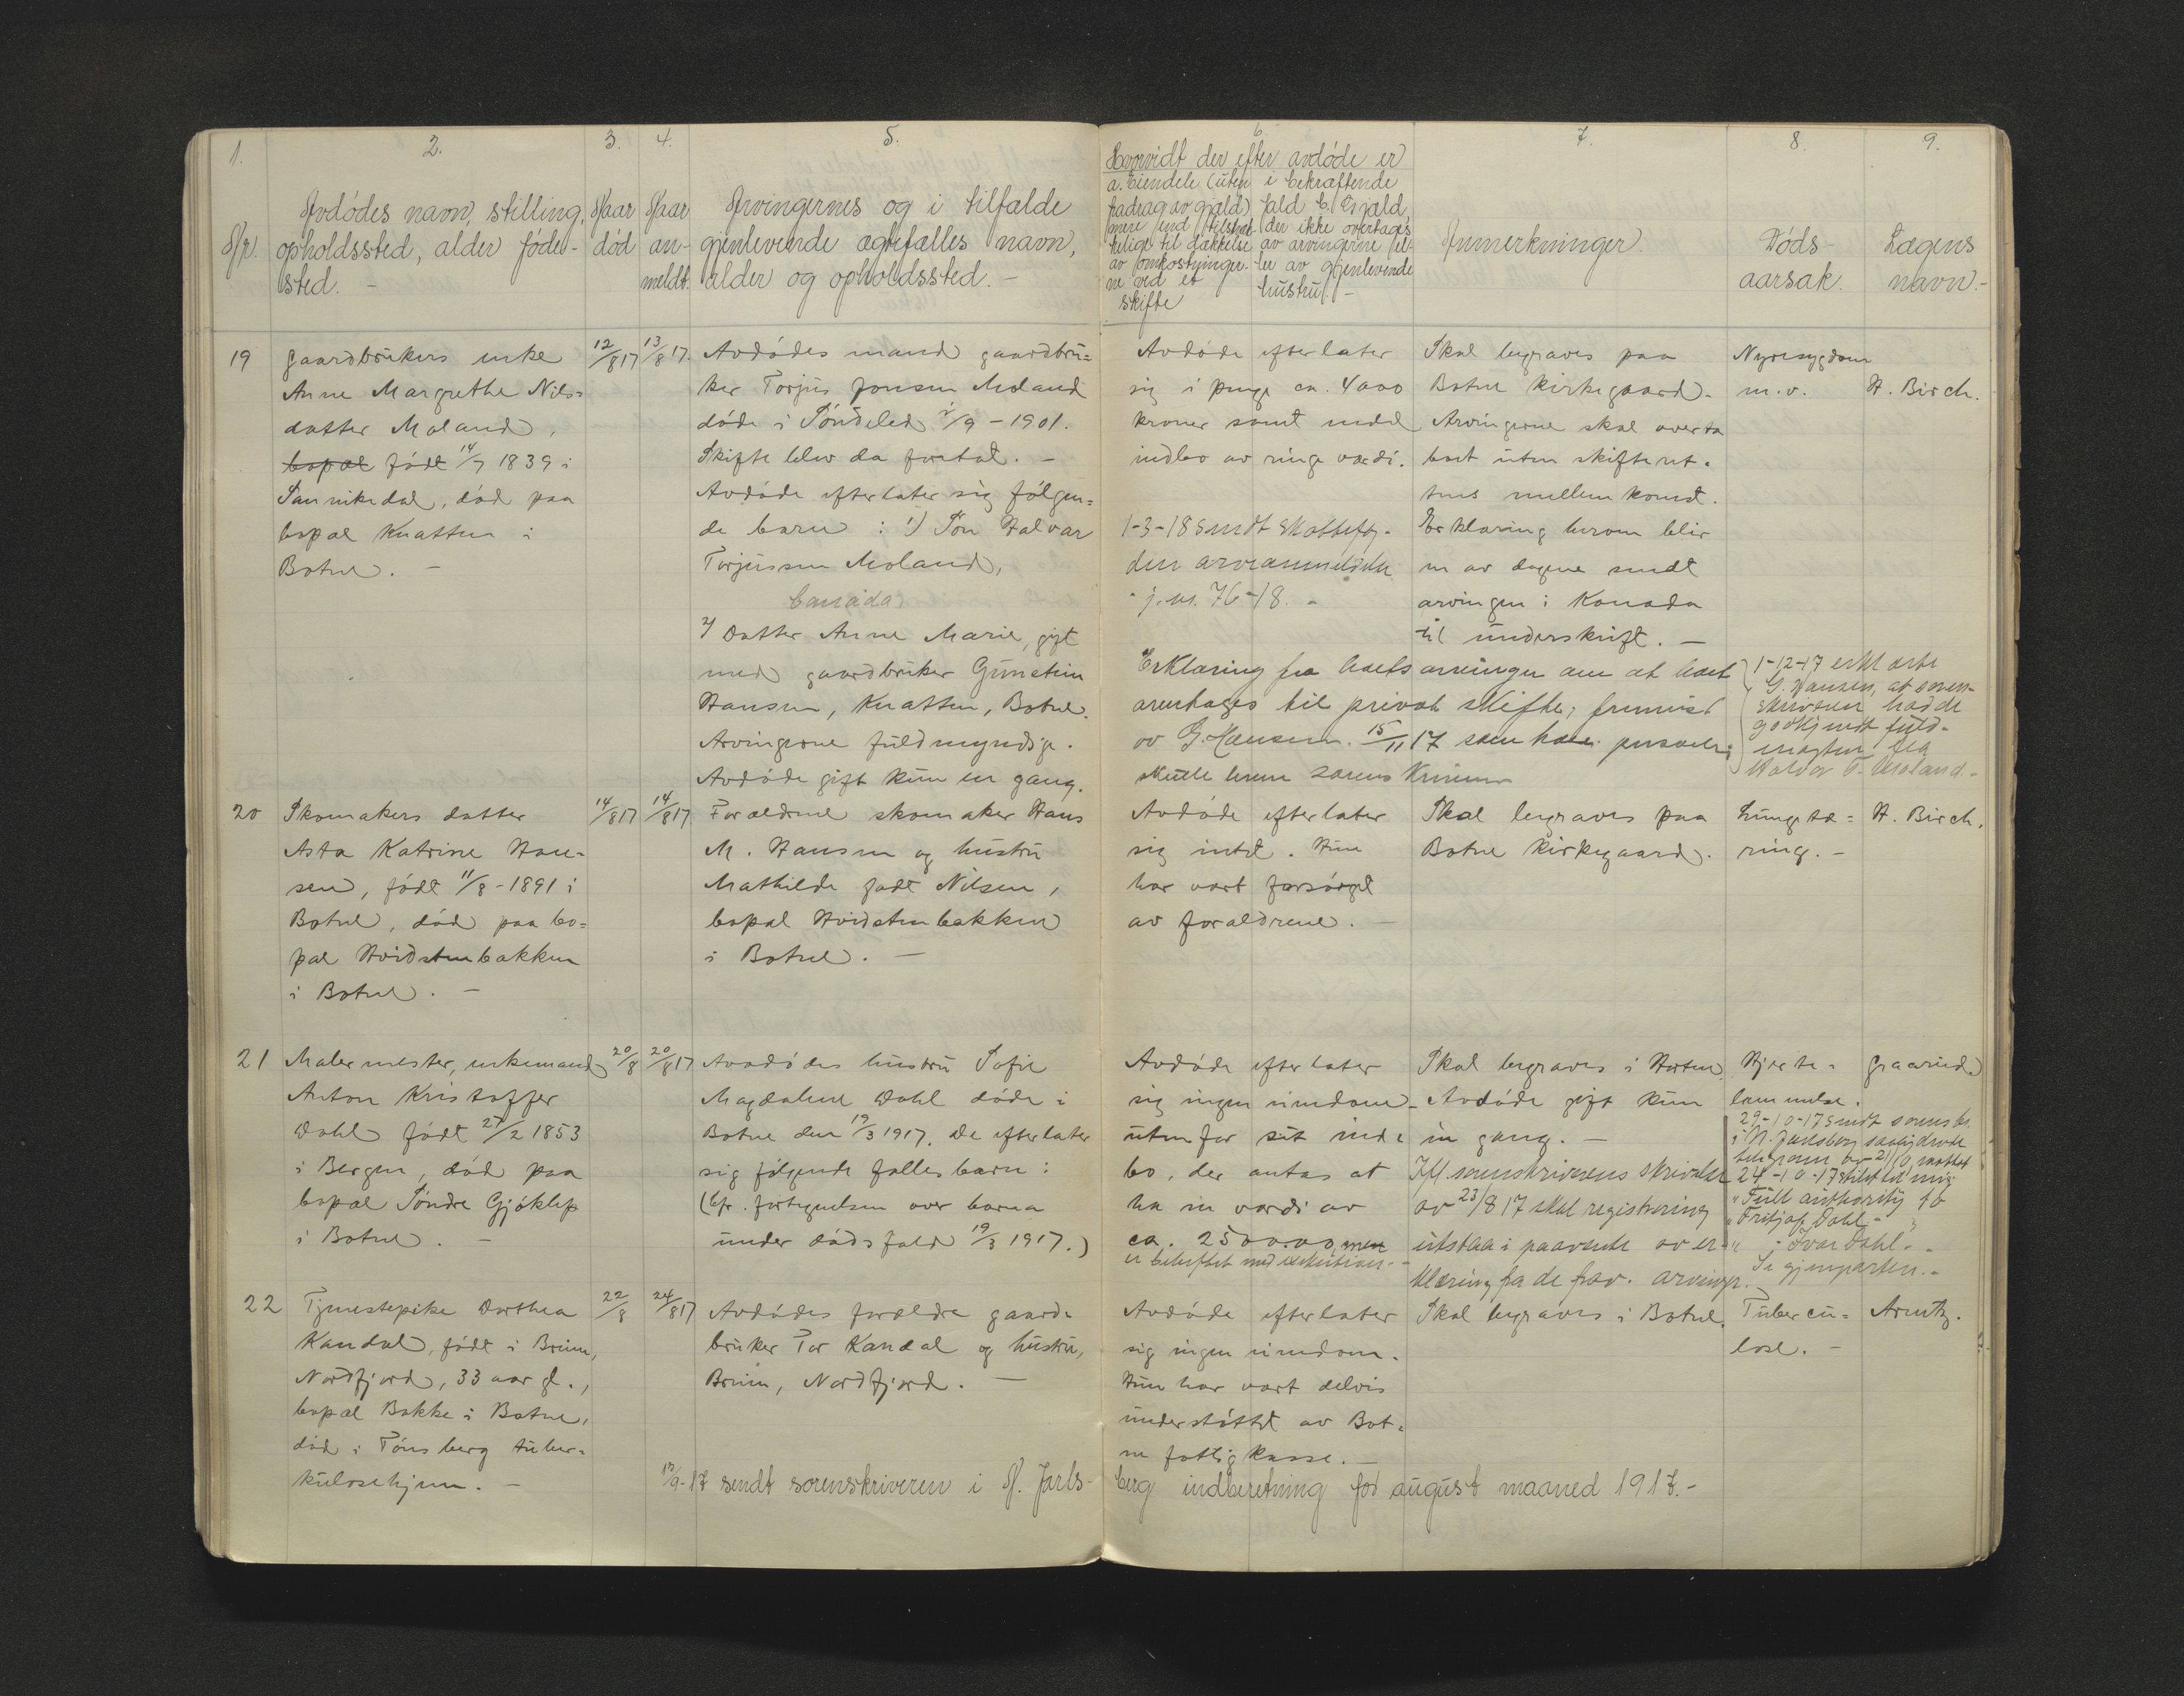 1.
2.
3.
4.
5.
Nr.
Avdødes navn, stilling,
opholdssted, alder føde-
sted. -
Naar
død
Naar
an-
meldt.
Arvingernes og i tilfælde
gjenlevende ægtefælles navn,
alder og opholdssted. -
6.
7.
8.
9.
Hvorvidt der efter avdøde er
a. Eiendele (uten
fradrag av gjæld)
mere end tilstræk-
kelige til dækkelse
av omkostninger-
ne ved et
skifte
i bekræftende
fald b. Gjæld
der ikke overtages
av arvingerne el-
ler av gjenlevende
hustru. -
Anmerkninger.
Døds-
aarsak.
Lægens
navn. -
19
gaardbrukers enke
Anne Margrethe Nils=
datter Moland,
bopæl født 14/7 1839 i
Sannikedal, død paa
bopæl Knatten i
Botne. -
12/8 17
13/8 17.
Avdødes mand gaardbru=
ker Torjus Jonsen Moland
døde i Søndeled /9 - 1901.
Skifte blev da foretat. -
Avdøde efterlater sig følgen=
de barn : 1) Søn Halvor
Torjussen Moland,
Canada
2) Datter Anne Marie, gift
med gaardbruker Gunstein
Hansen, Knatten, Botne.
Arvingerne fuldmyndige.
Avdøde gift kun en gang.
Avdøde efterlater
sig i penge ca. 4000
kroner samt endel
indbo av ringe værdi.
1-3-18 sendt skattefog-
den arveanmeldelse
j. nr. 76-18. -
Skal begraves paa
Botne kirkegaard.
Arvingerne skal overta
boet uten skifteret-
tens mellemkomst.
Erklæring herom blir
en av dagene sendt
arvingen i Kanada
til underskrift. -
Erklæring fra boets arvinger om at boet
overtages til privat skifte, fremvist
av G. Hansen 15/11 17 som
skulle levere sorenskriveren
Nyresygdom
m. v.
H. Birch.
1-12-17 erklærte
G. Hansen, at soren-
skriveren hadde
godkjendt fuld-
magten fra
Halvor T. Moland. -
20
Skomakers datter
Asta Katrine Han-
sen, født 11/8 - 1891 i
Botne, død paa bo=
pæl Hvidstenbakken
i Botne. -
14/8 17
14/8 17
Forældrene skomaker Hans
M. Hansen og hustru
Mathilde født Nilsen,
bopæl Hvidstenbakken
i Botne. -
Avdøde efterlater
sig intet. Hun
har vært forsørget
av forældrene. -
Skal begraves paa
Botne kirkegaard.
Lungetæ=
ring. -
H. Birch.
21
Malermester, enkemand
Anton Kristoffer
Dahl født 27/2 1853
i Bergen, død paa
bopæl Søndre Gjøklep
i Botne. -
20/8
20/8 17
Avdødes hustru Sofie
Magdalene Dahl døde i
Botne den 19/3 1917. De efterlater
sig følgende fælles barn:
(Cfr. fortegnelsen over barna
under dødsfald 19/3 1917.)
Avdøde efterlater
sig ingen eiendom
utenfor sit inde
bo, der antas at
ha en værdi av
ca. 2500.00, men
er beheftet med exekutioner. -
Skal begraves i Horten
Avdøde gift kun
en gang. -
Ifl. sorenskriverens skrivelse
av 23/8 17 skal registrering
utstaa i paavente av er-
klæring fra de frav. arvinger.
Hjerte-
lammelse.
Graarud
29-10-17 sendt sorenskr.
i N. Jarlsberg saalydende
telegram av 21/10 mottat
24-10-17 stilet til mig:
"Full authority to
"Fritjof Dahl - "
" Ivar Dahl. -
Se gjenparten. -
22
Tjenestepike Dorthea
Kandal, født i Breim,
Nordfjord, 33 aar gl.,
bopæl Bakke i Botne,
død i Tønsberg tuber=
kulosehjem. -
22/8
24/8 17
Avdødes forældre gaard-
bruker Tor Kandal og hustru,
Breim, Nordfjord. -
Avdøde efterlater
sig ingen eiendom.
Hun har vært delvis
understøttet av Bot=
ne fattigkasse. -
Skal begraves i Botne.
Tubercu=
lose. -
Arentz.
/9-17 sendt sorenskriveren i N. Jarls-
berg indberetning for august maaned 1917. -